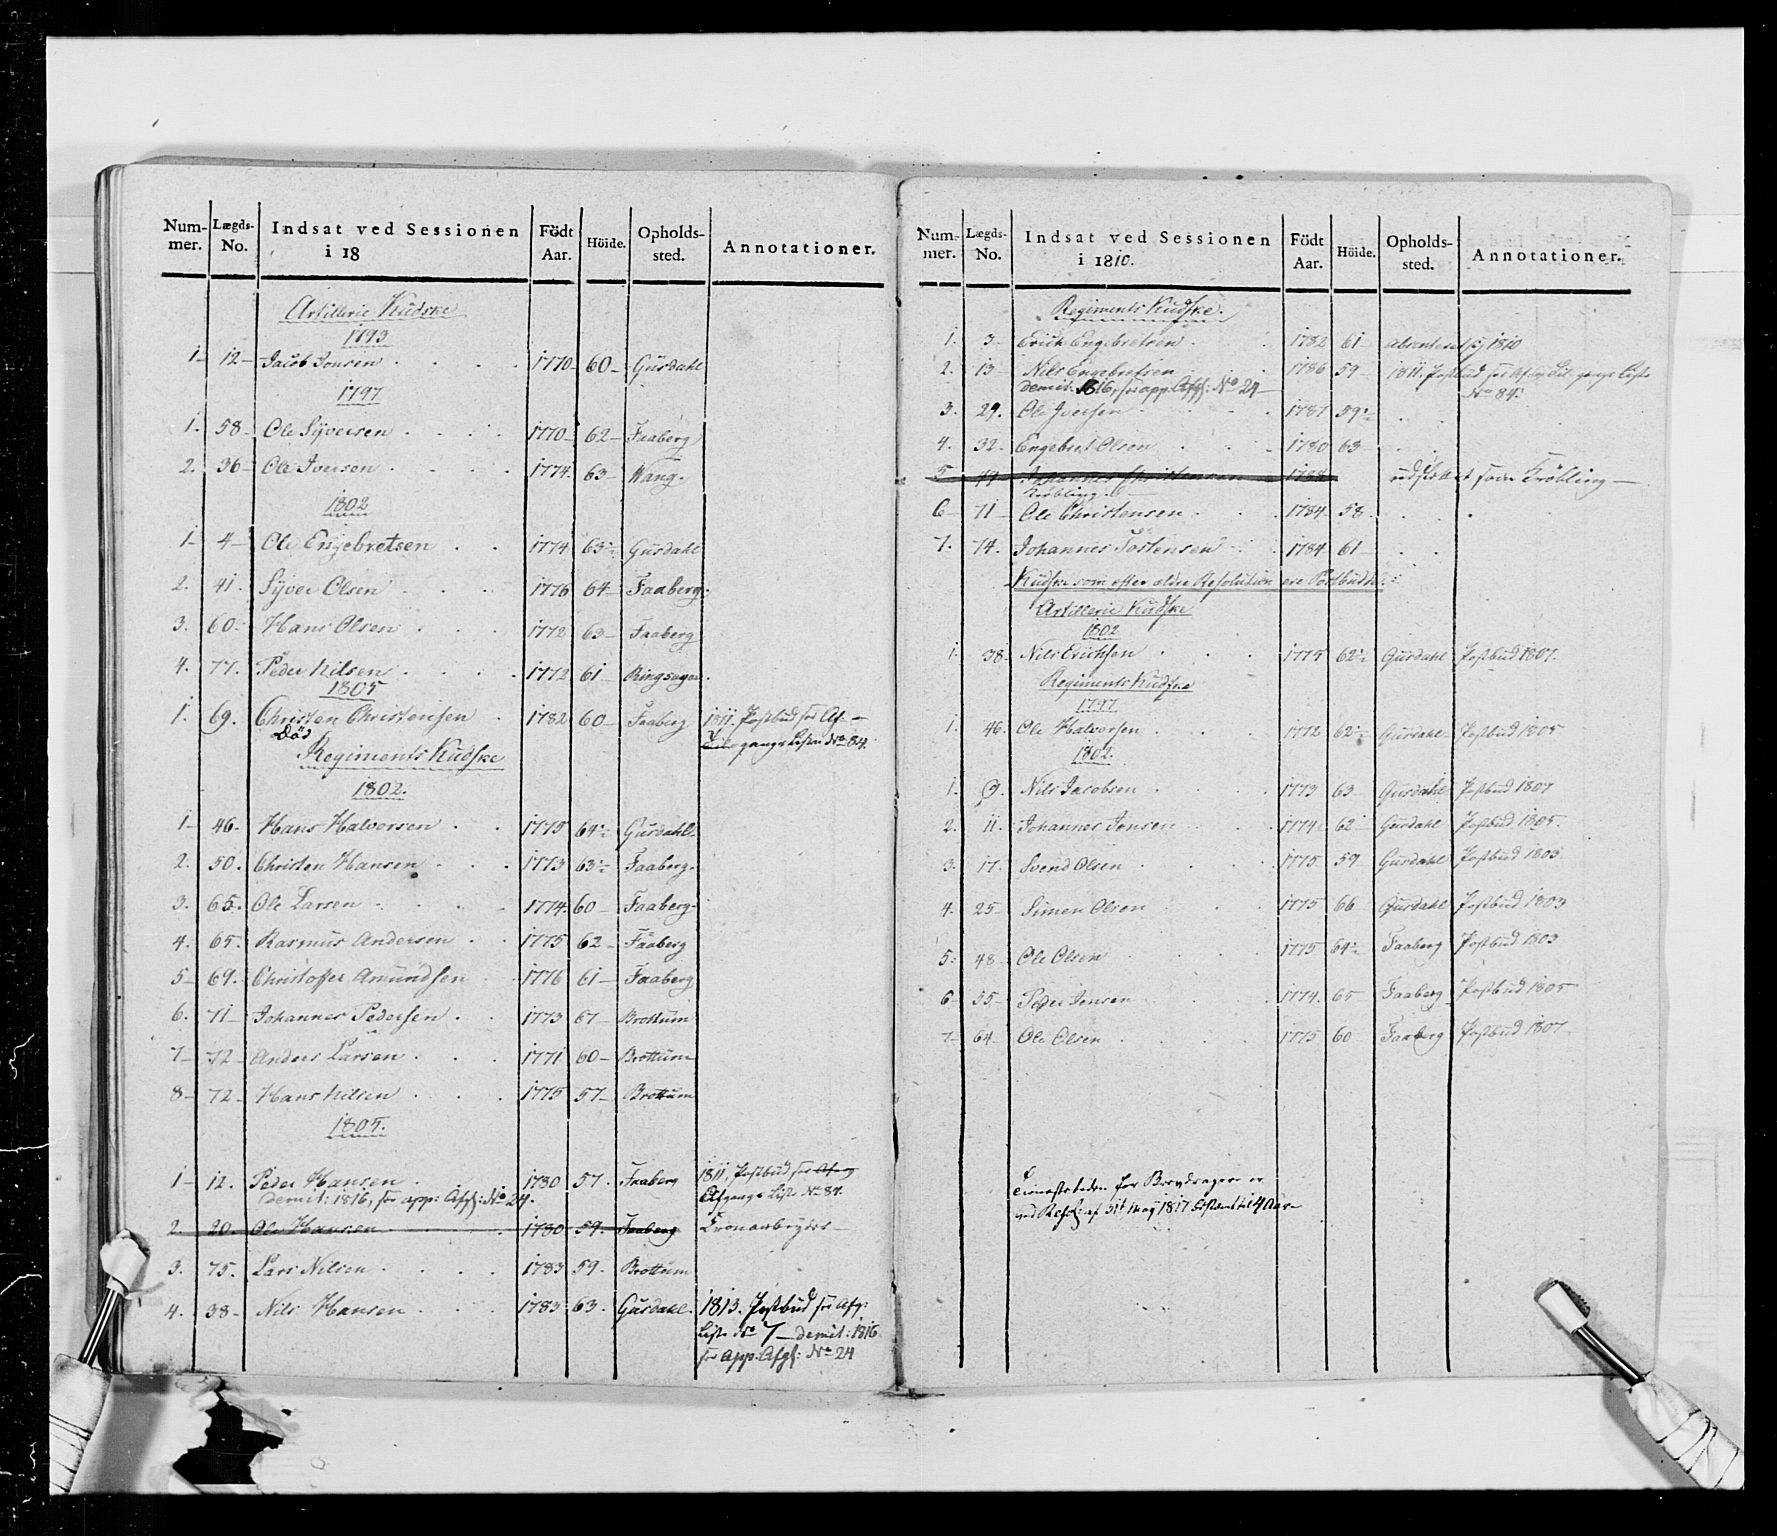 Num-mer. Lægds-No. Indsat ved Sessionen i 18 Födt Aar. Höide. Opholds-sted. Annotationer.
Artillerie Kudske
1793
1 12 Jacob Jonsen 1770 60 Gusdahl
1797
1. 58 Ole Syversen 1770 62 Faaberg
2. 36 Ole Iversen 1774 63 Wang
1802
1 4 Ole Engebretsen 1774 63 Gusdahl
2. 41. Syver Olsen 1776 64 Faaberg
3. 60. Hans Olsen 1772 63 Faaberg
4. 77. Peder Nilsen 1772 61 Ringsager
1805
1. 69. Christen Christensen 1782 60 Faaberg 1811. Postbud for Af-
Død gangs Listen No 84.
Regiments Kudske
1802.
1 46. Hans Halvorsen 1775 64 Gusdahl
2. 50. Christen Hansen 1773 63 Faaberg
3. 65. Ole Larsen 1774 60 Faaberg
4. 65. Rasmus Andersen 1775 62 Faaberg
5 69. Christoffer Amundsen 1776 61 Faaberg
6. 71 Johannes Pedersen 1773 67 Brottum
7 72 Anders Larsen 1771 60 Brottum
8 72 Hans Nilsen 1775 57 Brottum
1805.
1 12. Peder Hansen 1780 57. Faaberg 1811. Postbud for Afg
demit: 1816, for app: Afgl: No 24. Afgangs Liste No 84.
2. 20. Ole Hansen 1780 59. Faaberg Tronarbeyder
3. 75. Lars Nilsen 1783 59. Brottum
4. 38 Nils Hansen 1783 63. Gusdahl. 1813. Postbud for Afg:
Liste No 7 demit: 1816
for App: Afgl: No 24
Num-mer. Lægds-No. Indsat ved Sessionen i 1810. Födt Aar. Höide. Opholds-sted. Annotationer.
Regiments Kudske.
1. 3 Erich Engebretsen 1782 61 1810
2. 13 Nils Engebretsen 1786 59 1811. Postbud for gangs Liste
demit: 1816, for app: Afgl: No 24 No 84.
3. 29. Ole Iversen 1787 59
4. 32. Engebret Olsen 1780 63
5 Johannes Christensen udslettet som Krøbling
Krøbling
6 71 Ole Christensen 1784 58
7. 74. Johannes Tostensen 1784 61
Kudske som efter ældre Resolution ere Postbudde
Artillerie Kudske
1802
1. 38 Nils Erichsen 1775 62 Gusdahl Postbud 1807.
Regiments Kudske
1797.
1. 46. Ole Halvorsen 1772 62 Gusdahl Postbud 1805
1802.
1. 9. Nils Jacobsen 1773 63 Gusdahl Postbud 1807
2. 11. Johannes Jonsen 1774 62 Gusdahl Postbud 1805.
3. 17. Svend Olsen 1775 59 Gusdahl Postbud 1803
4. 25 Simen Olsen 1775 66 Gusdahl Postbud 1803
5. 48 Ole Olsen 1775 64 Faaberg Postbud 1803
6 55 Peder Jonsen 1774. 65 Faaberg Postbud 1805
7 64 Ole Olsen 1775 60 Faaberg Postbud 1807
Tienestetiden for Brevdragere er
ved Resol: af 31t May 1817 bestemt til 4 Aar